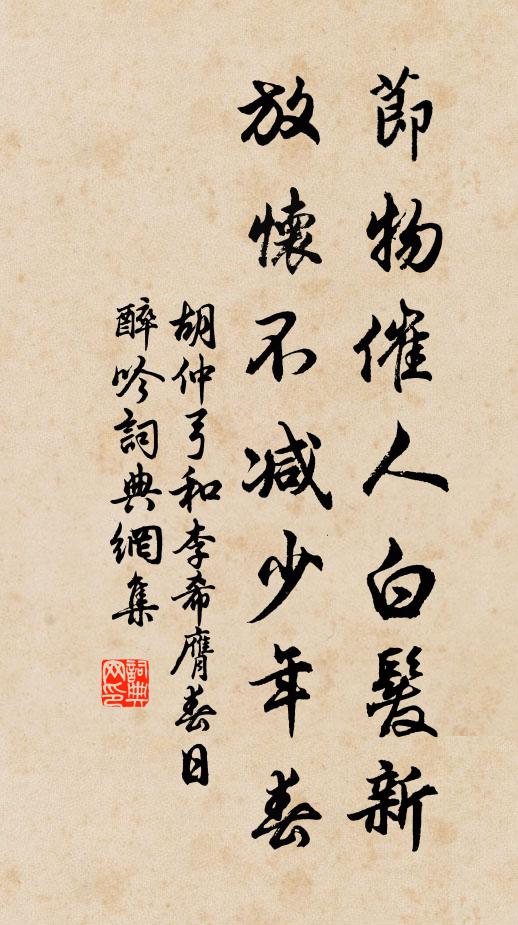 節物催人白髮新
放懷不減少年春
胡仲弓和李希膺春日
醉吟詞典網集
詞典網印